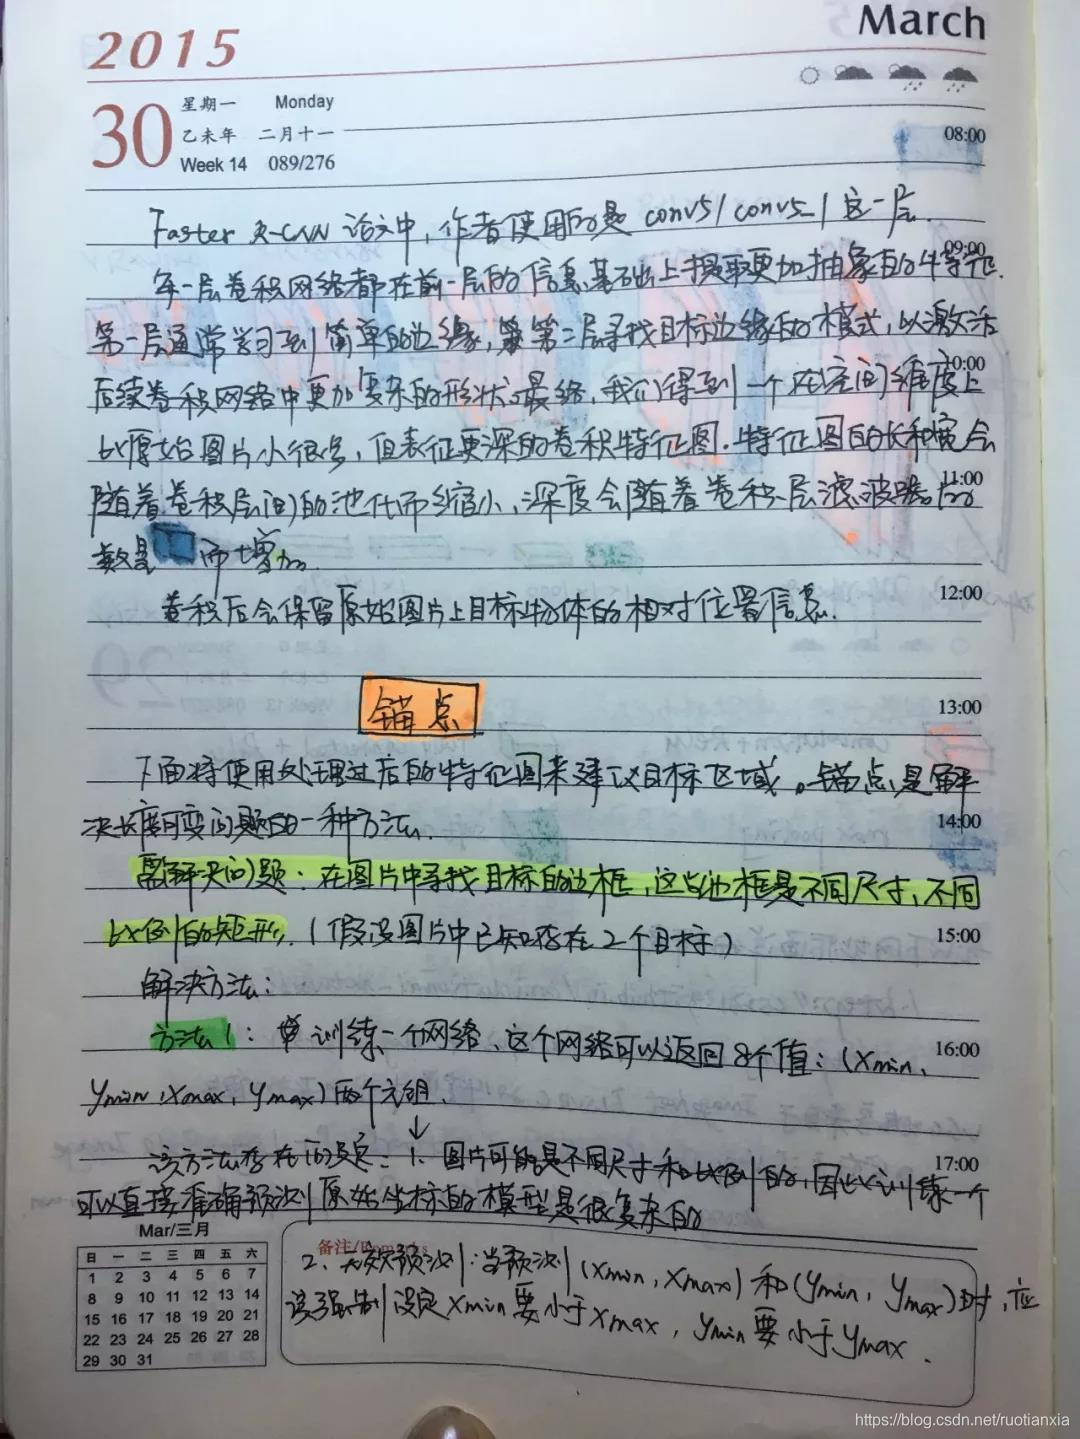 2015
March
30 星期一 Monday
乙未年 二月十一
08:00
Week 14 089/276
Faster R-CNN 论文中，作者使用的是 conv5/conv5_1 这一层.
09:00
每一层卷积网络都在前一层的信息基础上提取更加抽象的特征.
第一层通常学习到简单的边缘，第二层寻找目标边缘的模式，以激活
10:00
后续卷积网络中更加复杂的形状。最终，我们得到一个在空间维度上
比原始图片小很多，但表征更深的卷积特征图.特征图的长和宽会
11:00
随着卷积层间的池化而缩小，深度会随着卷积层滤波器的
数量 而增加.
12:00
卷积后会保留原始图片上目标物体的相对位置信息.
13:00
锚点
下面将使用处理过后的特征图来建议目标区域。锚点是解
14:00
决长度可变问题的一种方法.
需解决问题：在图片中寻找目标的边框，这些边框是不同尺寸，不同
15:00
比例的矩形.（假设图片中已知存在2个目标）
解决方法：
方法1： 训练一个网络、这个网络可以返回8个值：(xmin、
16:00
ymin，xmax，ymax) 两个元组.
该方法存在的 ：1. 图片可能是不同尺寸和比例的，因此训练一个
17:00
可以直接准确预测原始坐标的模型是很复杂的
备注/Remarks
2、无效预测：当预测(xmin，xmax) 和(ymin，ymax)时，应
该强制设定xmin要小于xmax，ymin要小于ymax.
Mar/三月
日 一 二 三 四 五 六
1 2 3 4 5 6 7
8 9 10 11 12 13 14
15 16 17 18 19 20 21
22 23 24 25 26 27 28
29 30 31
https://blog.csdn.net/ruotianxia